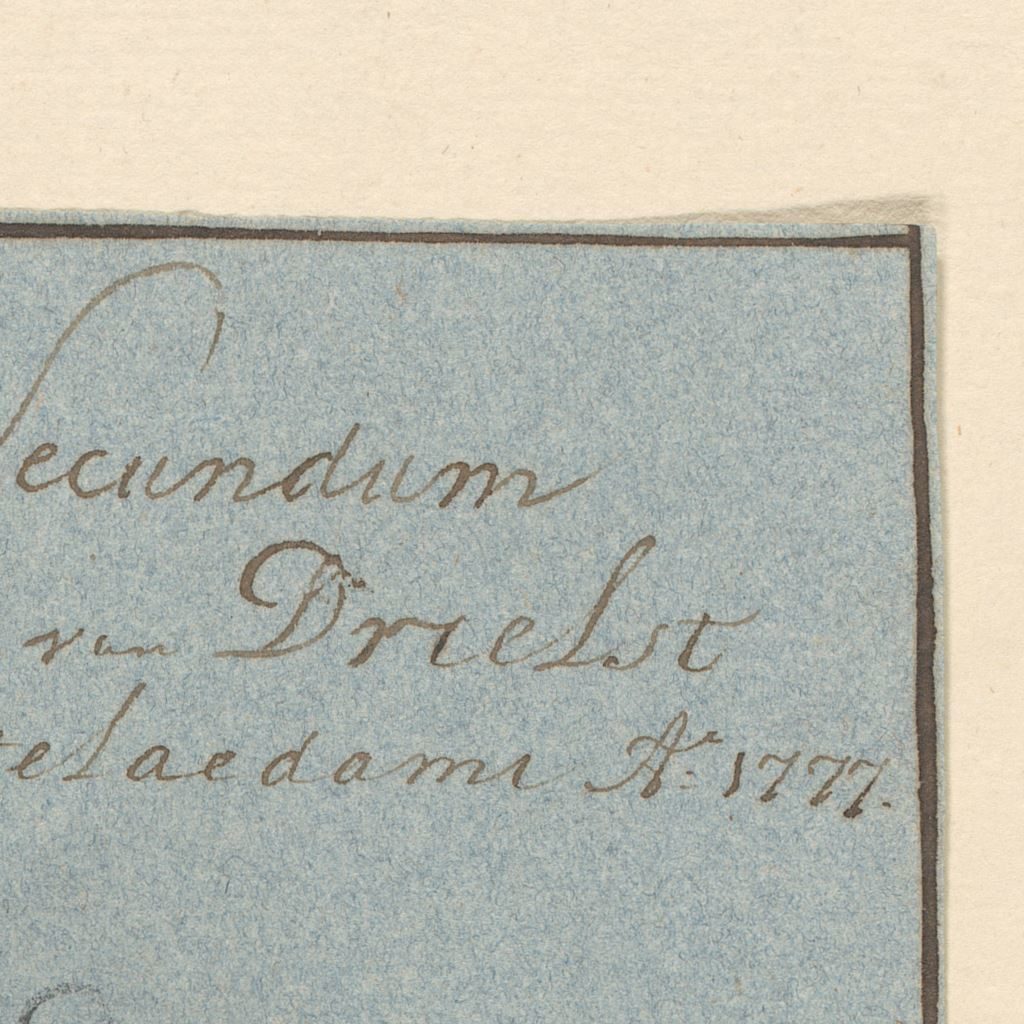 Secundum
van Drielst
telaedami Aº: 1777.